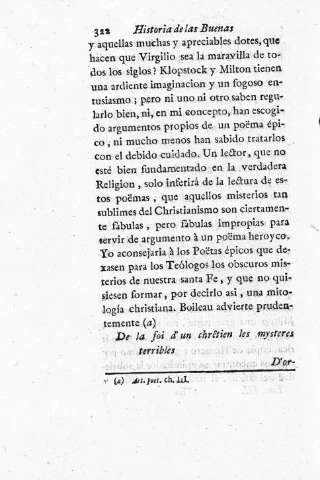 322 Historia de las Buenas
y aquellas muchas y apreciables dotes, que
hacen que Virgilio sea la maravilla de to-
dos los siglos? Klopstock y Milton tienen
una ardiente imaginacion y un fogoso en-
tusiasmo ; pero ni uno ni otro saben regu-
larlo bien, ni, en mi concepto, han escogi-
do argumentos propios de un poëma épi-
co , ni mucho menos han sabido tratarlos
con el debido cuidado. Un lector, que no
esté bien fundamentado en la verdadera
Religion , solo inferirá de la lectura de es-
tos poëmas , que aquellos misterios tan
sublimes del Christianismo son ciertamen-
te fábulas , pero fábulas impropias para
servir de argumento à un poëma heroyco.
Yo aconsejaría à los Poëtas épicos que de-
xasen para los Teólogos los obscuros mis-
terios de nuestra santa Fe , y que no qui-
siesen formar, por decirlo asi , una mito-
logía christiana. Boileau advierte pruden-
temente (a)
De la foi d'un chrêtien les mysteres
terribles
D'or-
(a) Art. poet. ch. III.